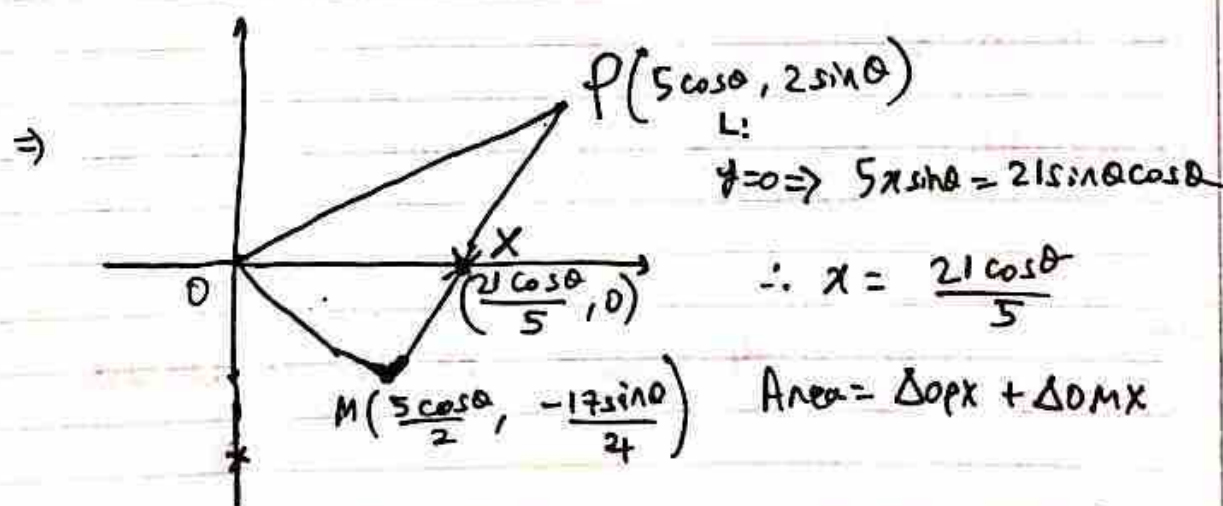 ⇒
P(5cosθ, 2sinθ)
L:
y=0 ⇒ 5x sinθ = 21sinθcosθ
X
O
(21cosθ/5, 0)
∴ x = 21cosθ/5
M(5cosθ/2, -17sinθ/4)
Area = ΔOPX + ΔOMX